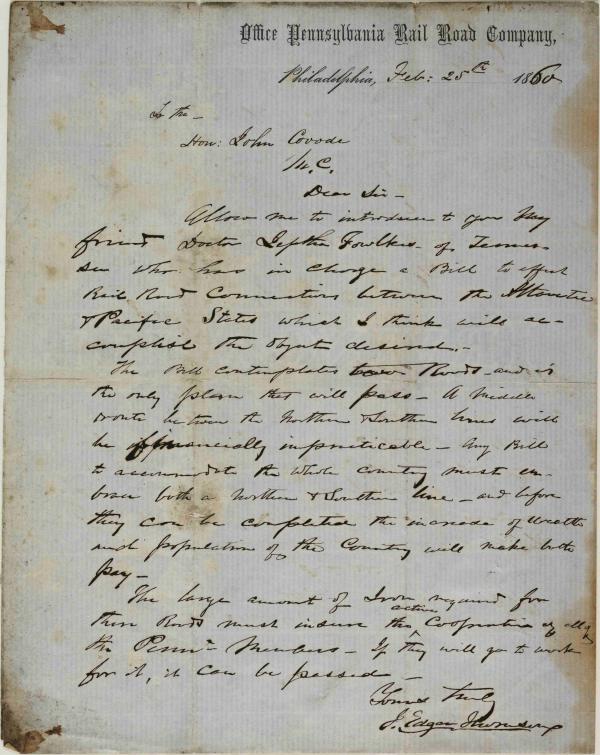 Office Pennsylvania Rail Road Company,
Philadelphia, Feb: 25th 1860
To the –
Hon: John Covode
H.C.
Dear Sir –
Allow me to introduce to you my
friend Doctor Jeptha Fowlkes – of Tennes-
see who has in charge a Bill to effect
Rail Road Connections between the Atlantic
& Pacific States which I think will ac-
complish the object desired. –
The Bill contemplates two Roads – and is
the only plan that will pass – A Middle
route between the Northern & Southern lines will
be financially impracticable – Any Bill
to accommodate the whole country must em-
brace both a Northern & Southern line – and before
they can be completed the increase of wealth
and population of the Country will make both
pay –
The large amount of Iron required for
these Roads must insure the active Cooperation of all
the Penna Members – If they will go to work
for it, it can be passed –
Yours truly
J. Edgar Thomson